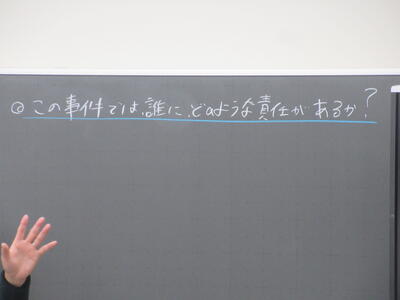 ◎この事件では、誰に、どのような責任があるか?